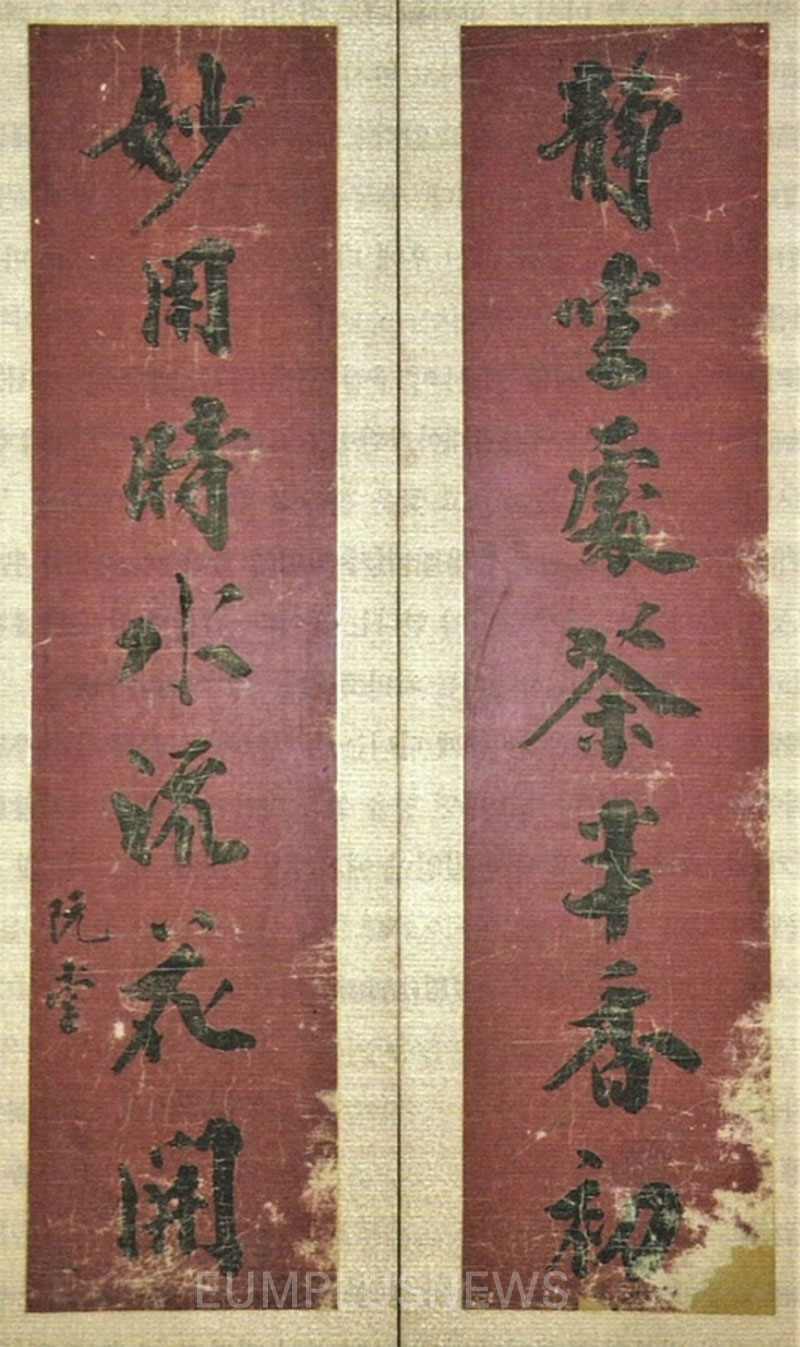 靜坐處茶半香初
妙用時水流花開
阮堂
EUMPLUSNEWS